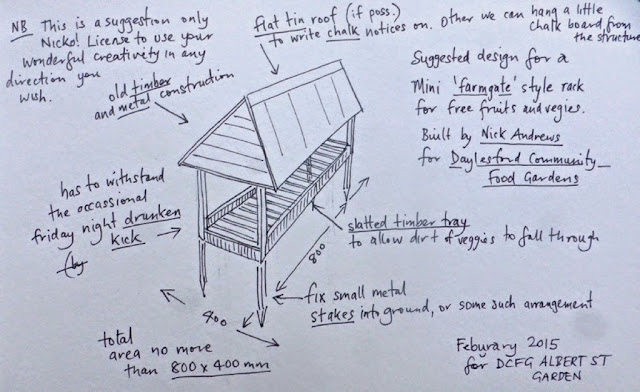 NB This is a suggestion only
Nicko! License to use your
wonderful creativity in any
direction you
wish.
flat tin roof (if poss.)
to write chalk notices on. Other we can hang a little
chalk board from
the structure
Suggested design for a
Mini 'farmgate' style rack
for free fruits and vegies.
Built by Nick Andrews
for Daylesford Community
Food Gardens
old timber
and metal construction
has to withstand
the occassional
friday night drunken
kick
slatted timber tray
to allow dirt of veggies to fall through
800
400
fix small metal
stakes into ground, or some such arrangement
total
area no more
than 800 x 400 mm
Feburary 2015
for DCFG ALBERT ST
GARDEN